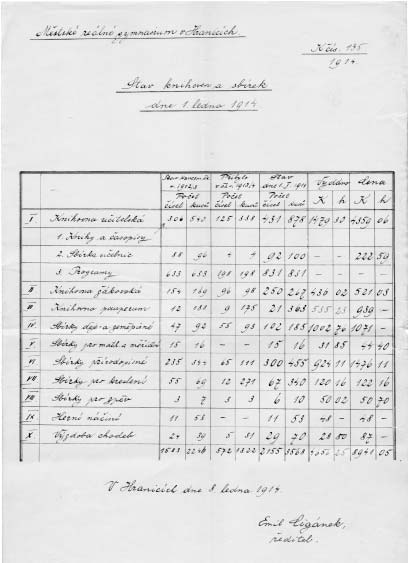 Městské reálné gymnasium v Hranicích
K čís. 135
1914.
Stav knihoven a sbírek
dne 1. ledna 1914.
Stav koncem šk. r. 1912/3 Přibylo v šk. r. 1913/4 Stav dne 1. I. 1914 Vydáno Cena
Počet Počet Počet
čísel kusů čísel kusů čísel kusů K h K h
I Knihovna učitelská 306 540 125 338 431 878 1479 30 4359 06
1. Knihy a časopisy
2. Sbírka učebnic 88 96 4 4 92 100 — — 222 59
3. Programy 633 653 198 198 831 851 — — — —
II Knihovna žákovská 154 169 96 98 250 267 436 02 521 03
III Knihovna pauperum 12 188 9 175 21 363 535 23 939 —
IV Sbírky děje a zeměpisné 47 92 55 93 102 185 1002 76 1071 —
V Sbírky pro math. a měřictví 15 16 — — 15 16 31 85 44 40
VI Sbírky přírodopisné 235 344 65 111 300 455 924 11 1476 11
VII Sbírky pro kreslení 55 69 12 271 67 340 120 16 122 16
VIII Sbírky pro zpěv 3 7 3 3 6 10 50 02 50 70
IX Herní náčiní 11 53 — — 11 53 48 — 48 —
X Výzdoba chodeb 24 39 5 31 29 70 28 80 87 —
1583 2246 572 1322 2155 3568 4656 25 8941 05
V Hranicích dne 8. ledna 1914.
Emil Cigánek,
ředitel.